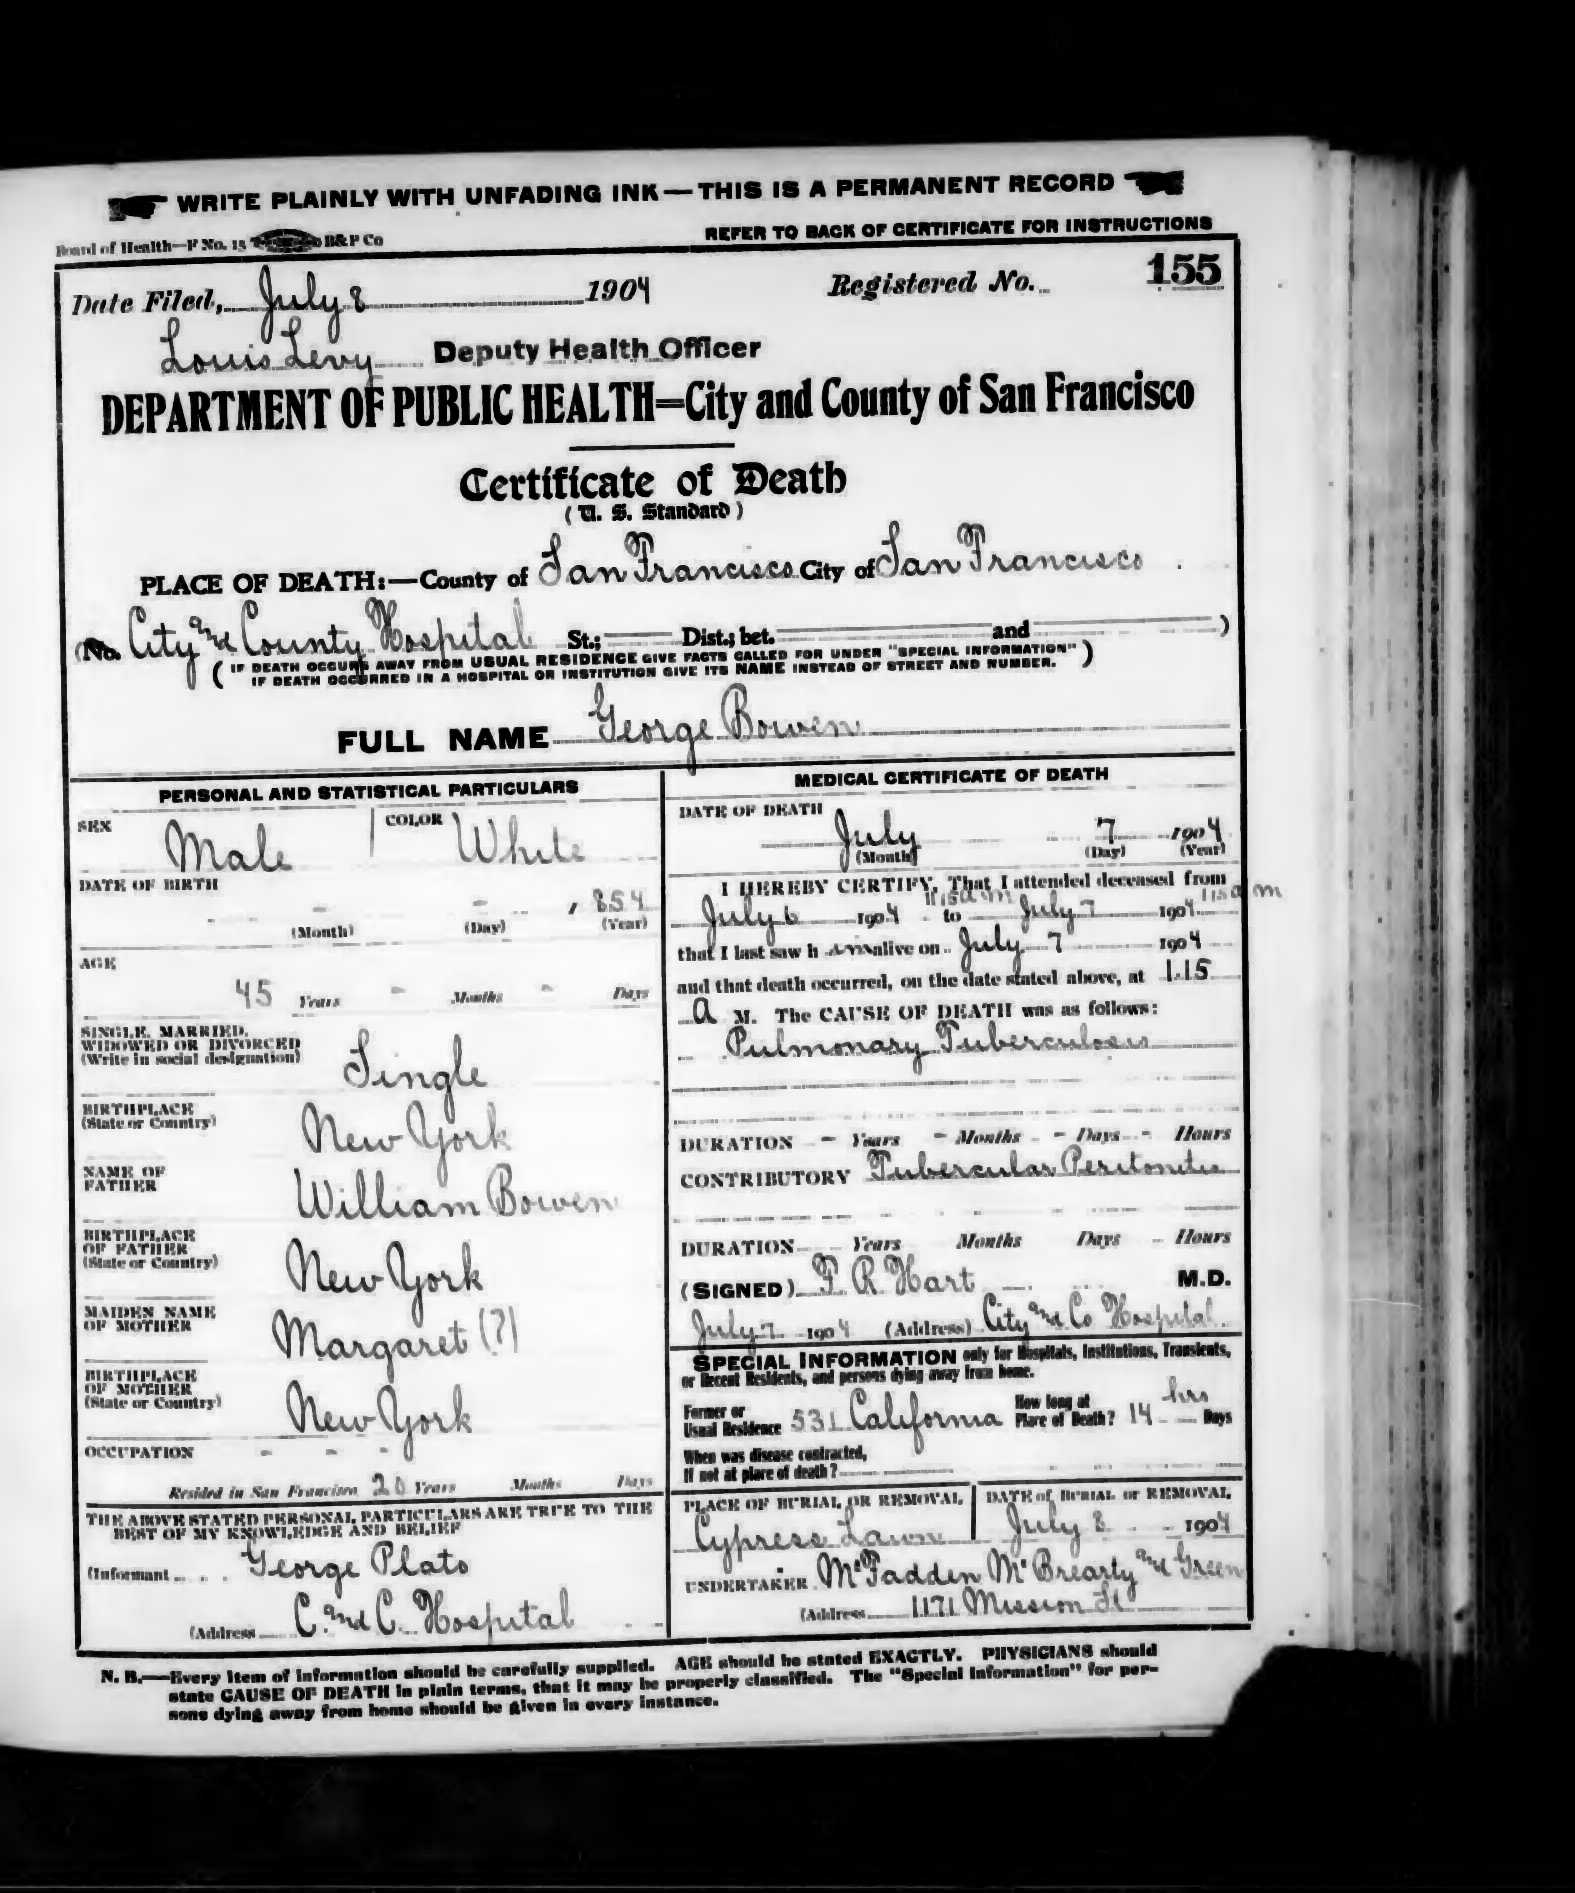 WRITE PLAINLY WITH UNFADING INK — THIS IS A PERMANENT RECORD
Board of Health—F No. 15 B&P Co
REFER TO BACK OF CERTIFICATE FOR INSTRUCTIONS
Date Filed, July 8 1904 Registered No. 155
Louis Levy Deputy Health Officer
DEPARTMENT OF PUBLIC HEALTH=City and County of San Francisco
Certificate of Death
(U. S. Standard)
PLACE OF DEATH:—County of San Francisco City of San Francisco
(No. City and County Hospital St.; Dist.; bet. and )
( IF DEATH OCCURS AWAY FROM USUAL RESIDENCE GIVE FACTS CALLED FOR UNDER "SPECIAL INFORMATION" )
IF DEATH OCCURRED IN A HOSPITAL OR INSTITUTION GIVE ITS NAME INSTEAD OF STREET AND NUMBER.
FULL NAME George Bowen
PERSONAL AND STATISTICAL PARTICULARS
SEX Male COLOR White
DATE OF BIRTH
- - , 854
(Month) (Day) (Year)
AGE
45 Years - Months - Days
SINGLE, MARRIED,
WIDOWED OR DIVORCED
(Write in social designation) Single
BIRTHPLACE
(State or Country) New York
NAME OF
FATHER William Bowen
BIRTHPLACE
OF FATHER
(State or Country) New York
MAIDEN NAME
OF MOTHER Margaret (?)
BIRTHPLACE
OF MOTHER
(State or Country) New York
OCCUPATION - - -
Resided in San Francisco 20 Years Months Days
THE ABOVE STATED PERSONAL PARTICULARS ARE TRUE TO THE
BEST OF MY KNOWLEDGE AND BELIEF
(Informant George Plato
(Address C. and C. Hospital
MEDICAL CERTIFICATE OF DEATH
DATE OF DEATH
July 7 1904
(Month) (Day) (Year)
I HEREBY CERTIFY, That I attended deceased from
July 6 1904 11:15 a m to July 7 1904 1:15 a m
that I last saw h im alive on July 7 1904
and that death occurred, on the date stated above, at 1.15
A M. The CAUSE OF DEATH was as follows:
Pulmonary Tuberculosis
DURATION - Years - Months - Days - Hours
CONTRIBUTORY Tubercular Peritonitis
DURATION Years Months Days Hours
(SIGNED) F. R. Hart M.D.
July 7 1904 (Address) City and Co Hospital
SPECIAL INFORMATION only for Hospitals, Institutions, Transients,
or Recent Residents, and persons dying away from home.
Former or
Usual Residence 531 California How long at
Place of Death? 14 hrs Days
When was disease contracted,
If not at place of death?
PLACE OF BURIAL OR REMOVAL DATE of BURIAL or REMOVAL
Cypress Lawn July 8 1904
UNDERTAKER McFadden McBrearty and Green
(Address 1171 Mission St
N. B.—Every item of information should be carefully supplied. AGE should be stated EXACTLY. PHYSICIANS should
state CAUSE OF DEATH in plain terms, that it may be properly classified. The "Special Information" for per-
sons dying away from home should be given in every instance.